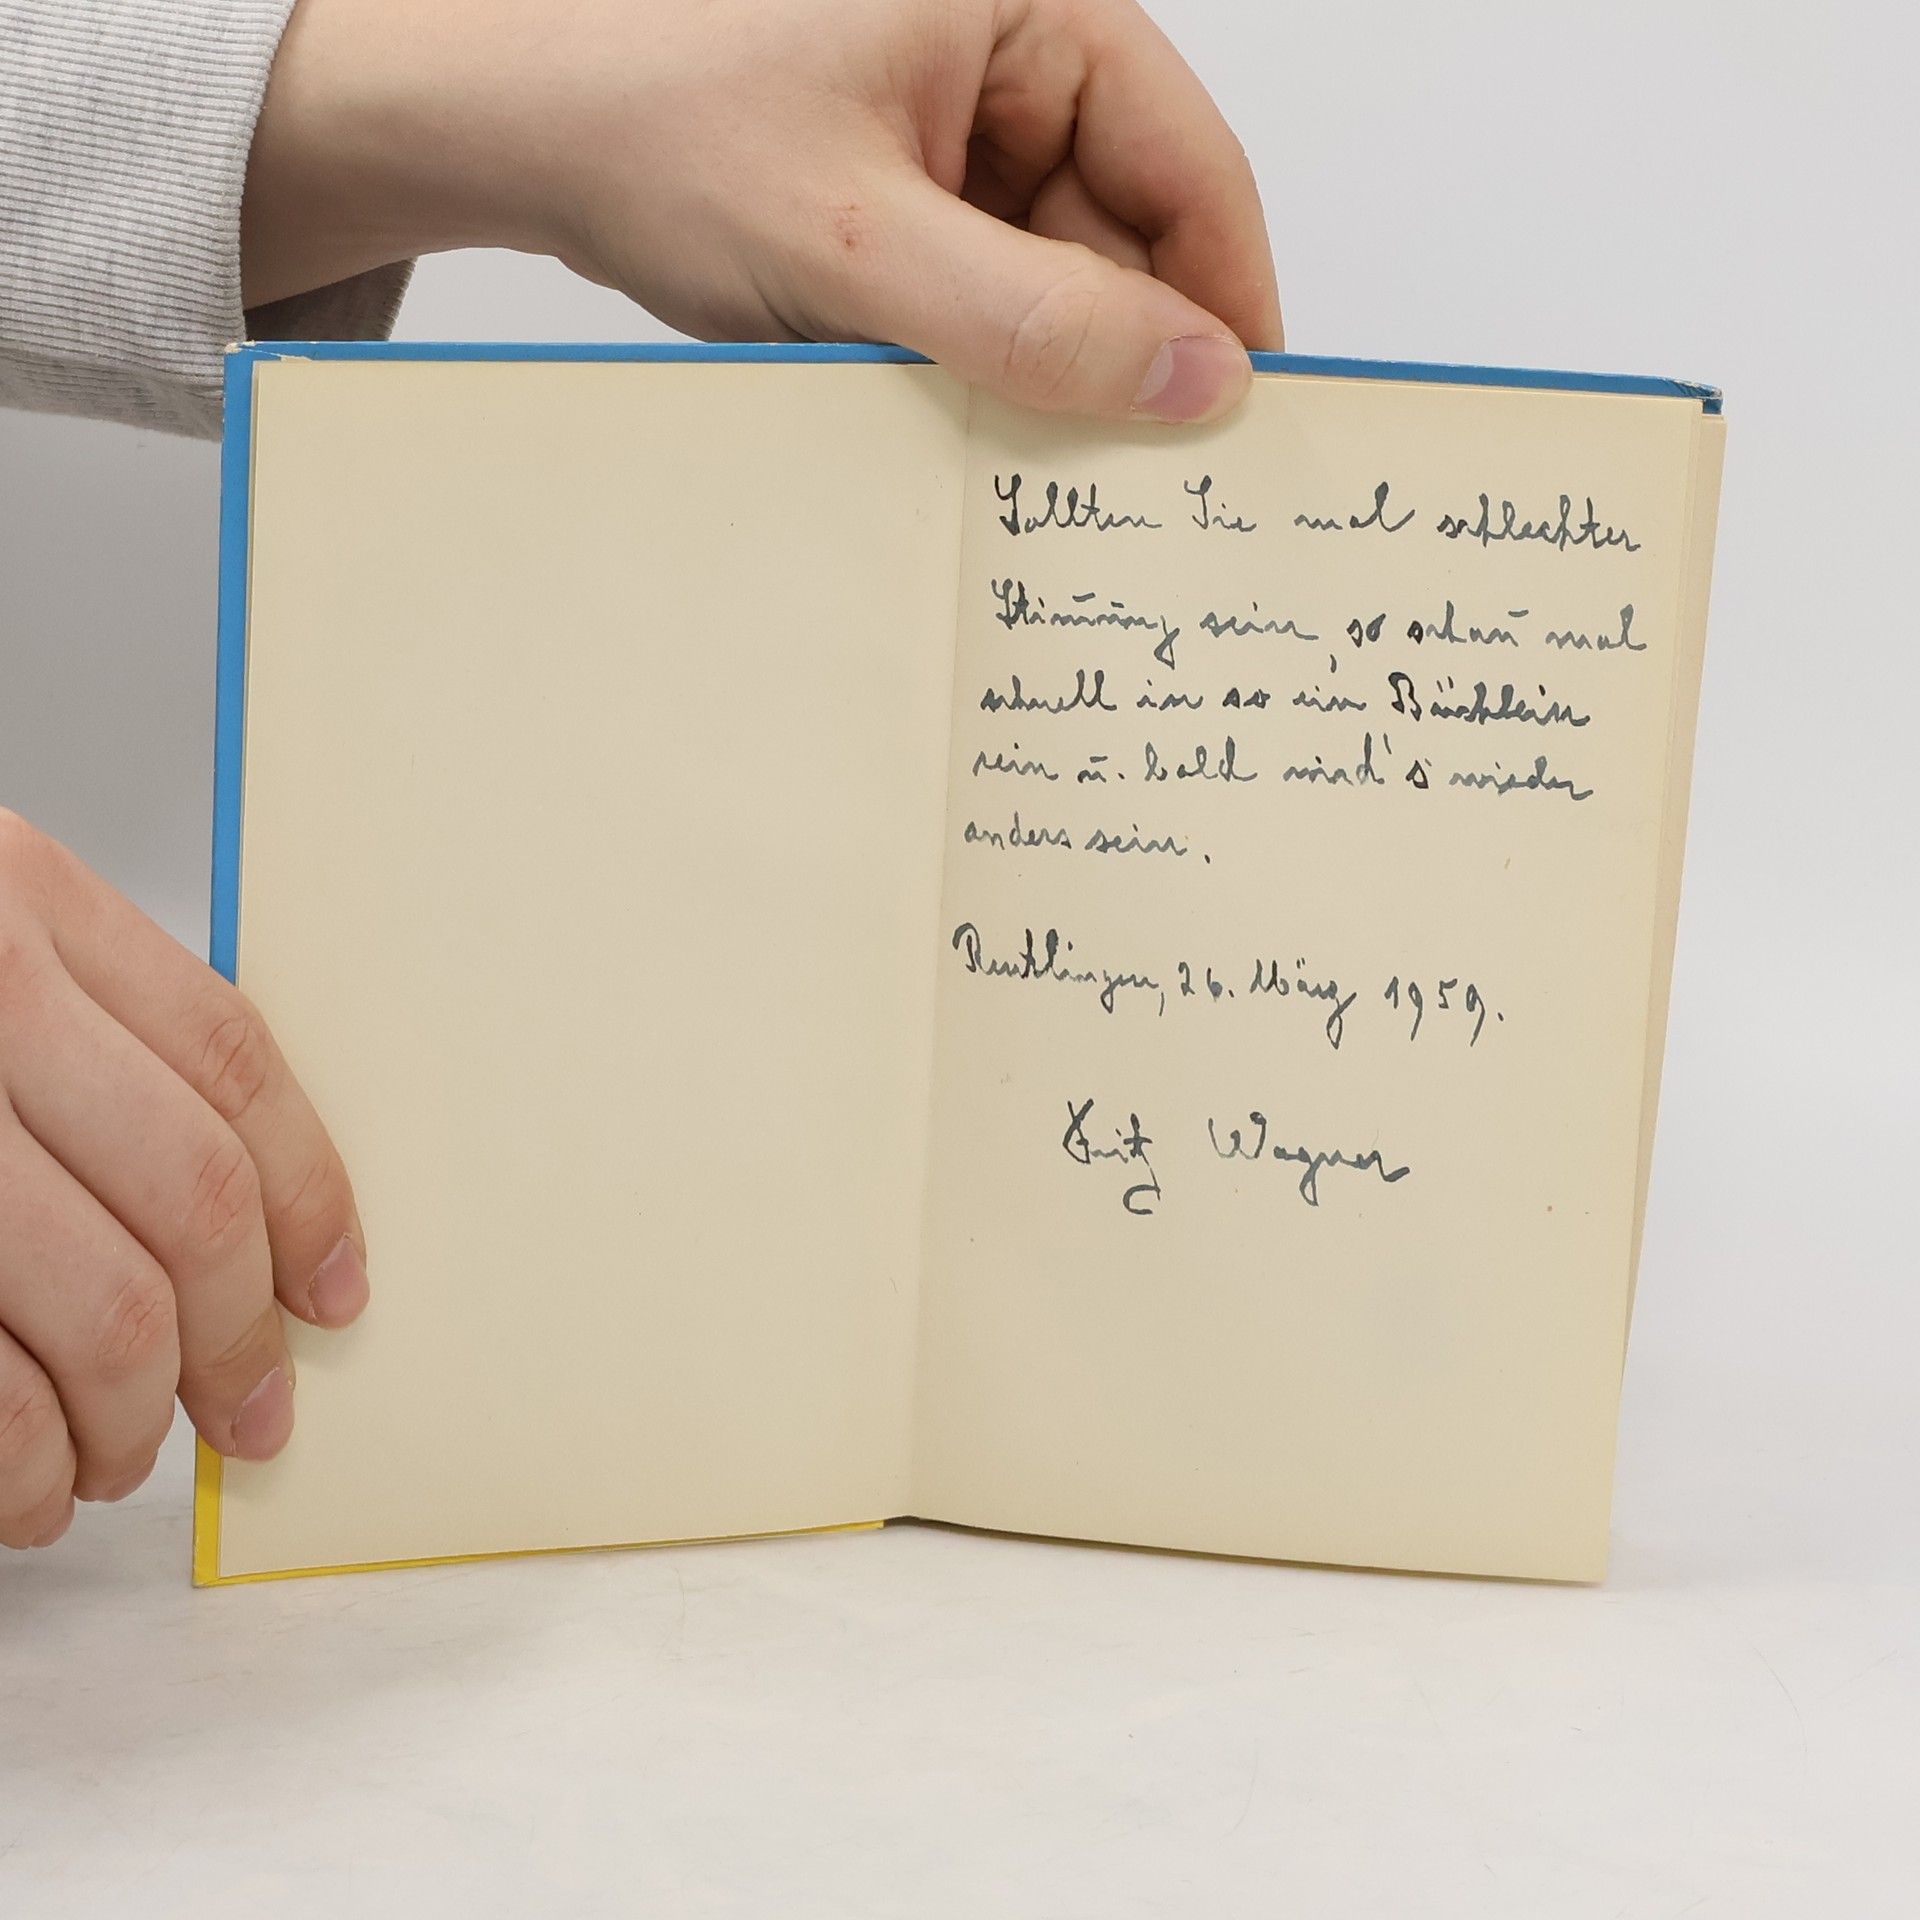 Sollten Sie mal schlechter
Stim̄ung sein, so schau mal
schnell in so ein Büchlein
rein u. bald wird's wieder
anders sein.
Reutlingen, 26. März 1959.
Fritz Wagner